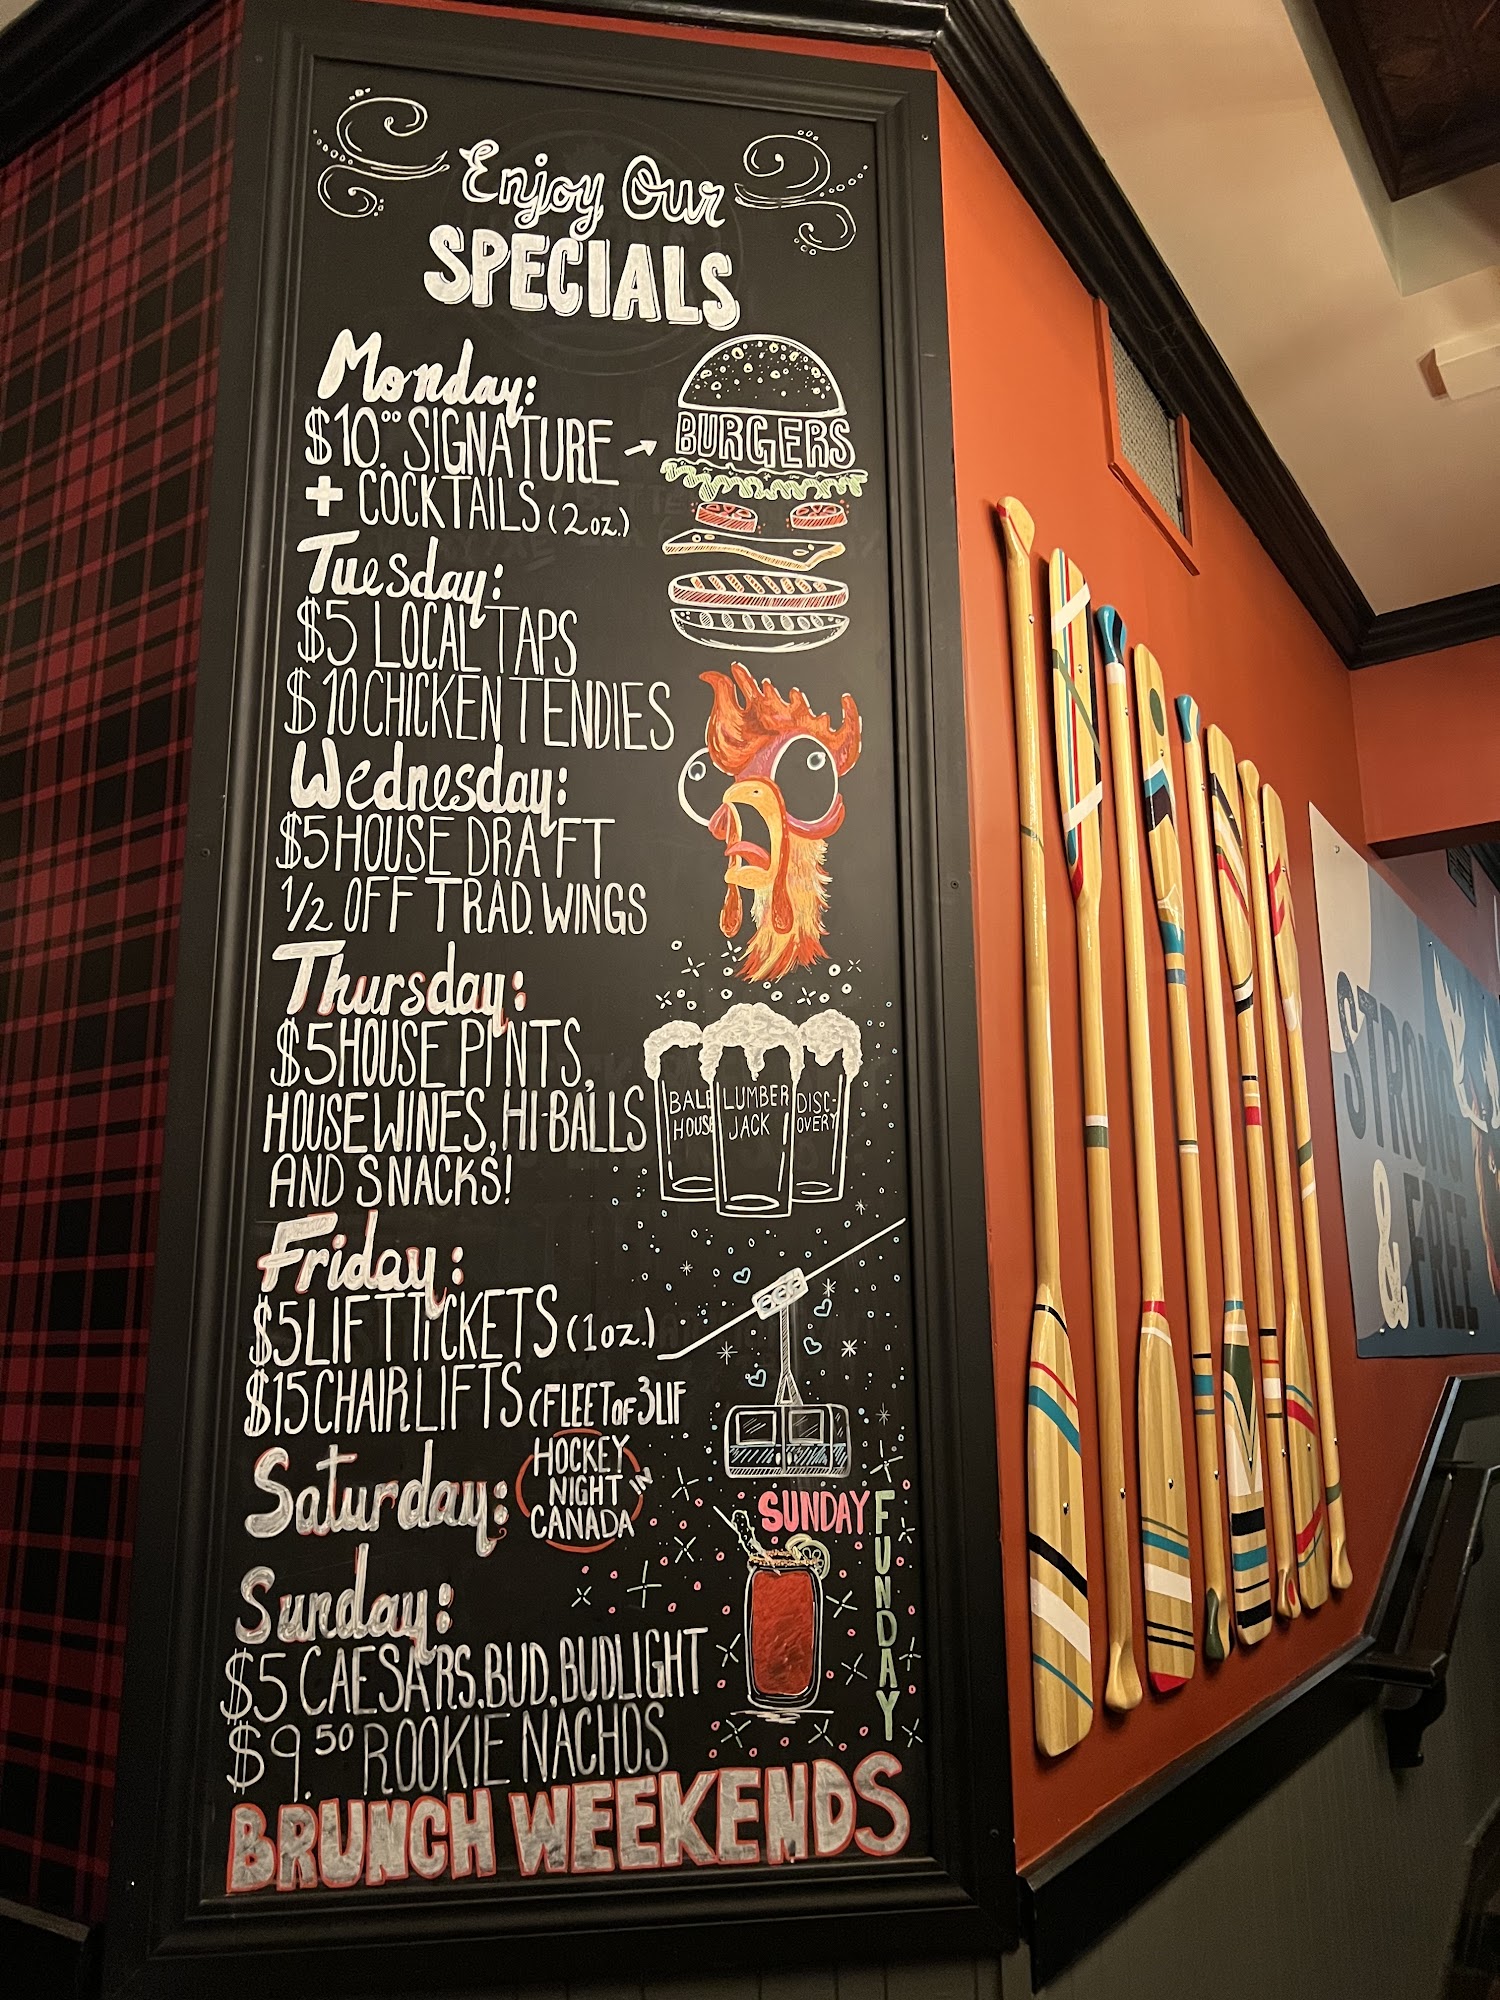 Enjoy Our
SPECIALS
Monday:
$10.00 SIGNATURE → BURGERS
+ COCKTAILS (2oz.)
Tuesday:
$5 LOCAL TAPS
$10 CHICKEN TENDIES
Wednesday:
$5 HOUSE DRAFT
1/2 OFF TRAD. WINGS
Thursday:
$5 HOUSE PINTS,
HOUSE WINES, HI-BALLS
AND SNACKS!
BALE
HOUSE
LUMBER
JACK
DISC-
OVERY
Friday:
$5 LIFT TICKETS (1oz.)
$15 CHAIRLIFTS (FLEET OF 3 LIF
Saturday:
HOCKEY
NIGHT IN
CANADA
SUNDAY
FUNDAY
Sunday:
$5 CAESARS, BUD, BUDLIGHT
$9.50 ROOKIE NACHOS
BRUNCH WEEKENDS
STRONG
& FREE